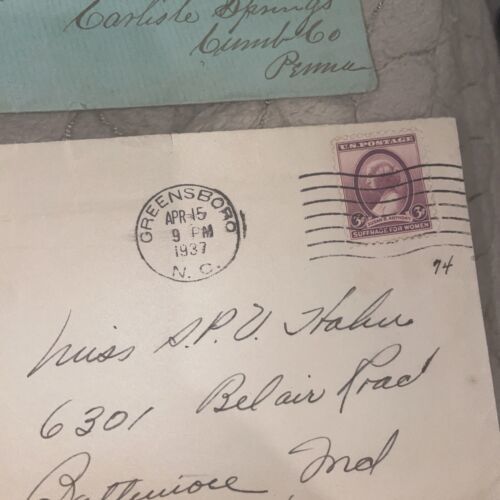 Carlisle Springs
Cumb Co
Penna
U.S. POSTAGE
3¢ SUSAN B. ANTHONY 3¢
SUFFRAGE FOR WOMEN
GREENSBORO
APR 15
9 PM
1937
N. C.
74
Miss S.P.V. Hahn
6301 Belair Road
Baltimore Md